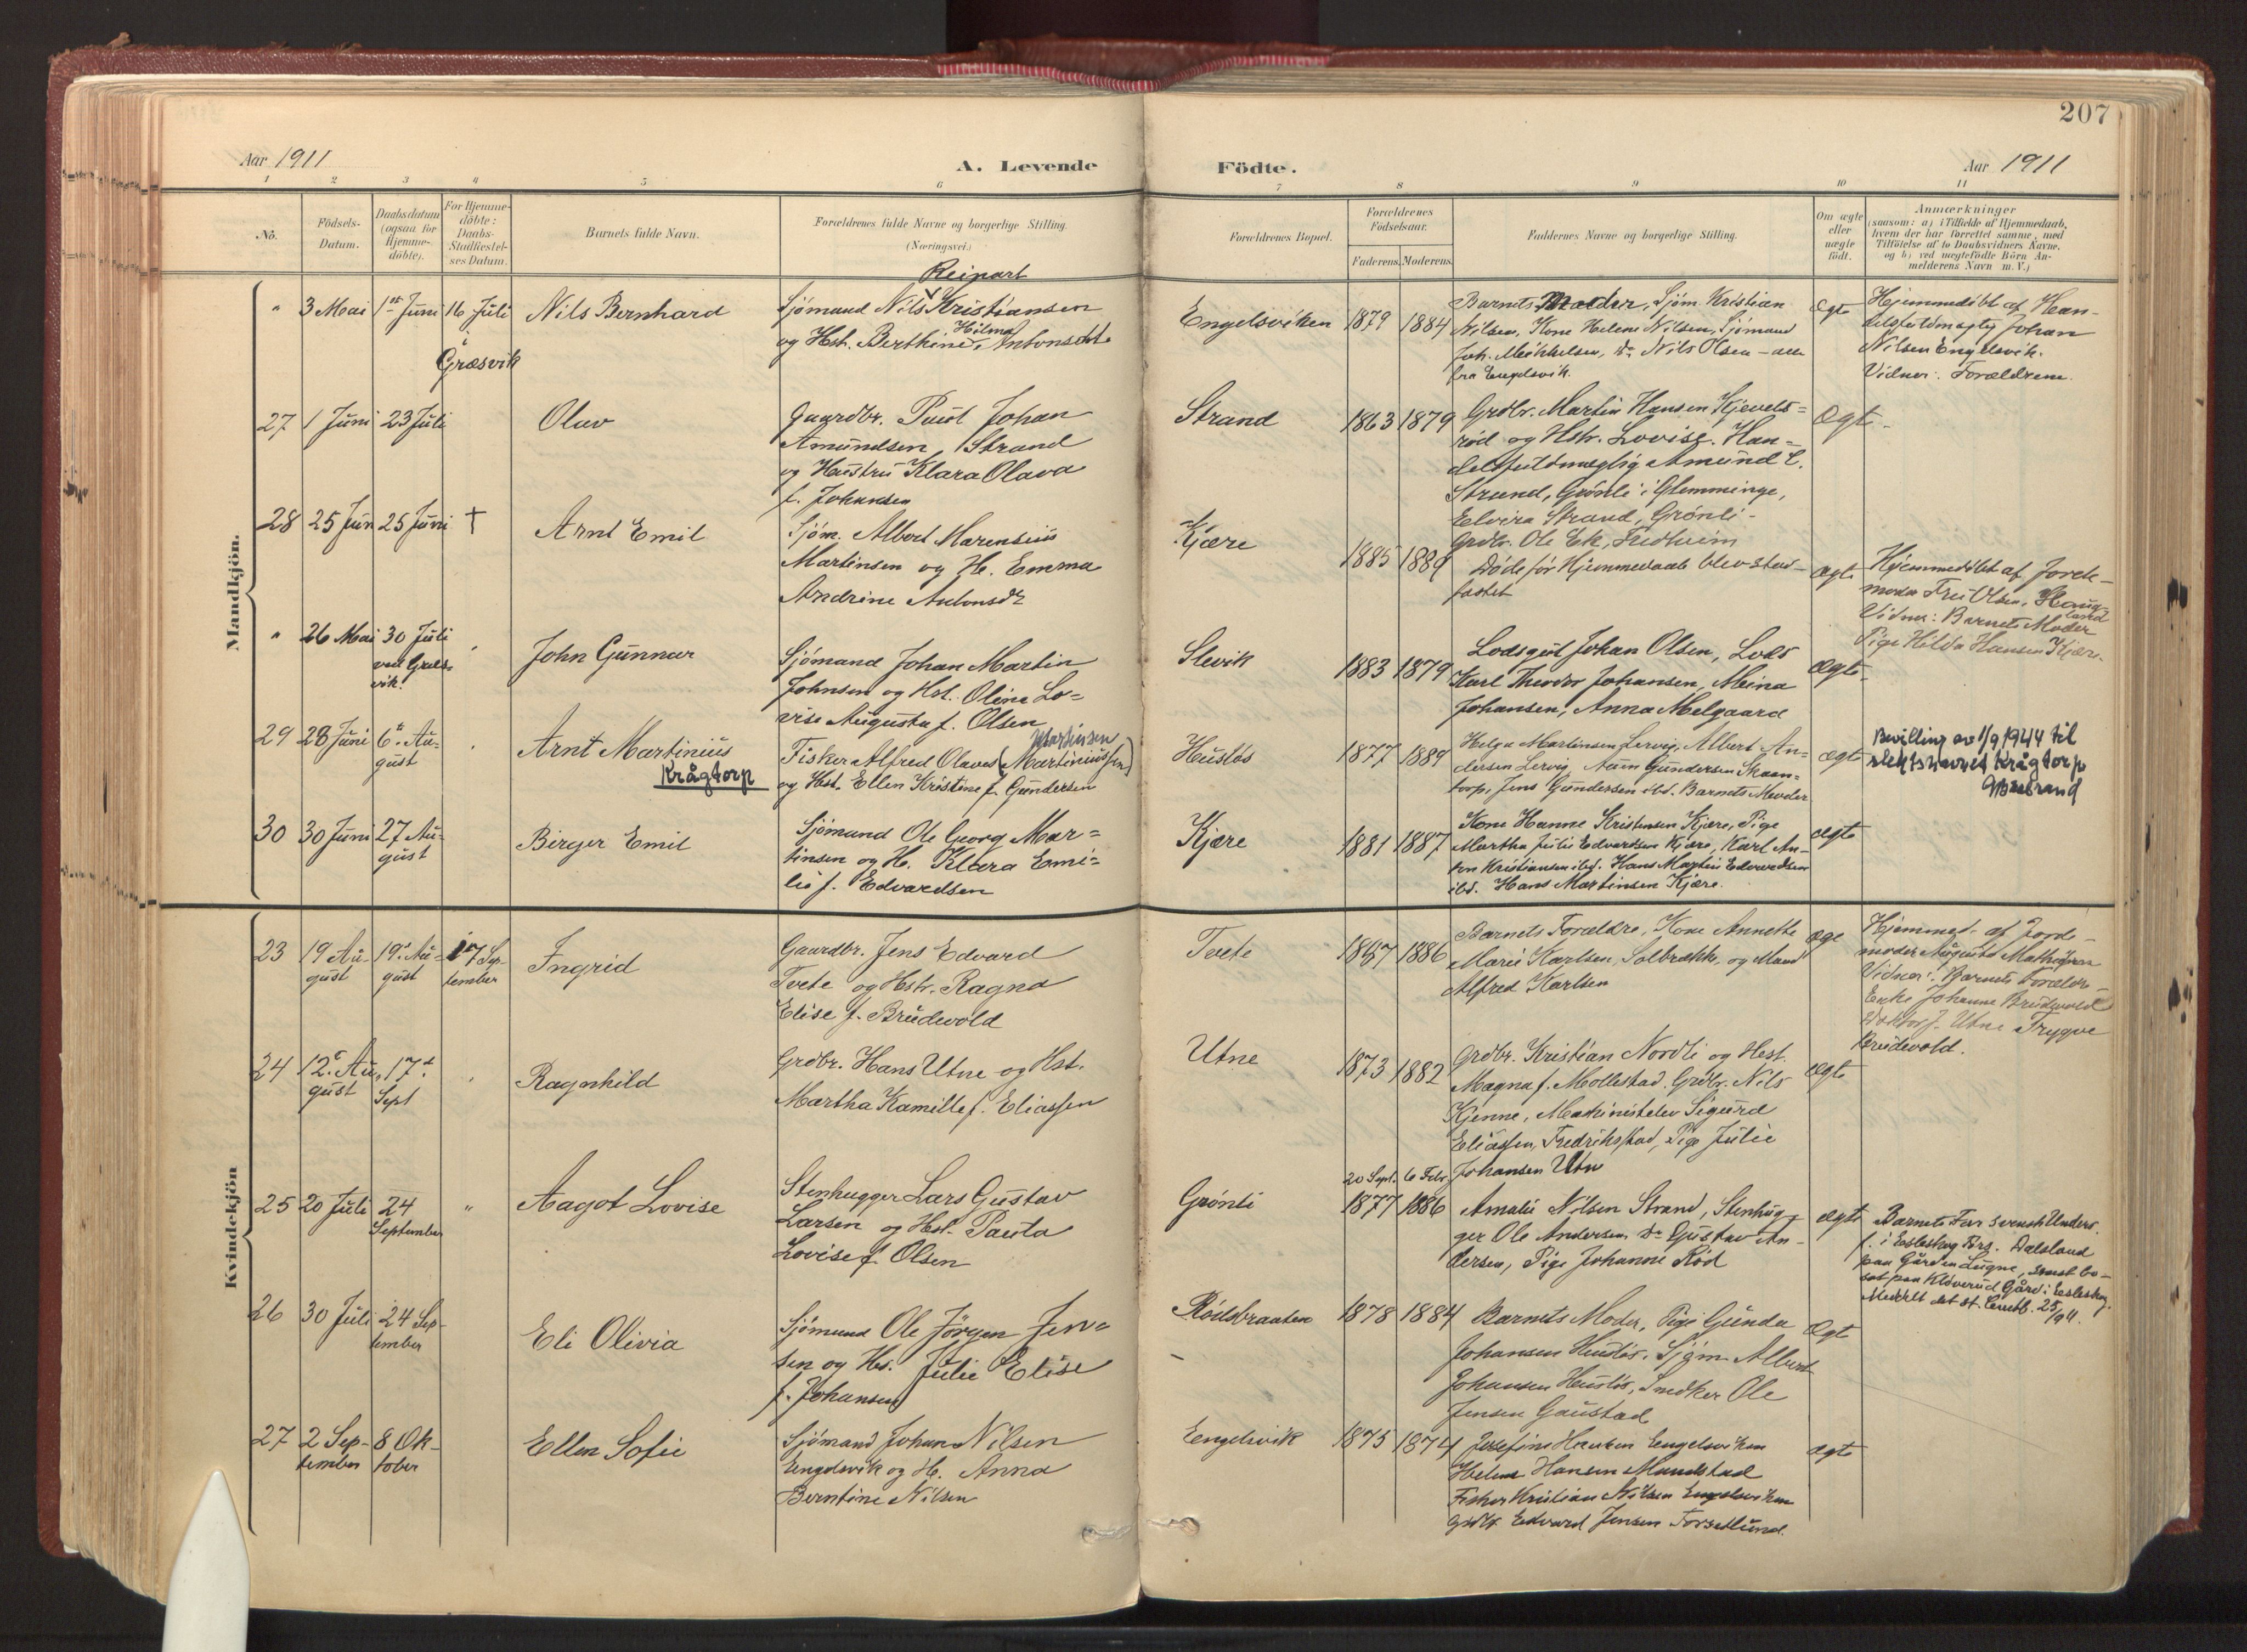 207
Aar 1911
A. Levende
Födte.
Aar 1911
1
2
3
4
5
6
7
8
9
10
11
No.
Födsels-
Datum.
Daabsdatum
(ogsaa for
Hjemme-
döbte).
For Hjemme-
döbte:
Daabs-
Stadfæstel-
ses Datum.
Barnets fulde Navn.
Forældrenes fulde Navne og borgerlige Stilling.
(Næringsvei.)
Forældrenes Bopæl.
Forældrenes
Födselsaar.
Faderens.
Moderens.
Faddernes Navne og borgerlige Stilling.
Om ægte
eller
uægte
födt.
Anmærkninger
(saasom: a) i Tilfælde af Hjemmedaab,
hvem der har forrettet samme, med
Tilföielse af to Daabsvidners Navne,
og b) ved uægtefödte Börn An-
melderens Navn m. V.)
Mandkjön.
"
3 Mai
1ste Juni
16 Juli
i
Græsvik
Nils Bernhard
Reinart
Sjömand Nils Kristiansen
Hilma
og Hst. Berthine Antonsdtr
Engelsviken
1879
1884
Barnets Moder, Sjöm. Kristian
Nilsen, Kone Helene Nilsen, Sjömand
Joh. Mikkelsen, do Nils Olsen - alle
fra Engelsvik.
Ægte
Hjemmedöbt af Han-
delsfuldmægtig Johan
Nilsen Engelsvik.
Vidner: Forældrene.
27
1 Juni
23 Juli
Olav
Gaardbr. Paul Johan
Amundsen, Strand
og Hustru Klara Olava
f. Johansen
Strand
1863
1879
Grdbr. Martin Hansen Kjevels-
röd og Hstr. Lovise. Han-
delsfuldmægtig Amund E.
Strand, Grönli i Glemminge,
Elvira Strand, Grönli -
Grdbr. Ole Ek, Fredheim
Ægte
28
25 Juni
25 Juni
†
Arnt Emil
Sjöm. Albert Marensius
Martinsen og H. Emma
Andrine Antonsdtr
Kjære
1885
1889
Döde för Hjemmedaab blev stad-
fæstet
Ægte
Hjemmedöbt af Jorde-
moder Fru Olsen, Haug-
land
Vidner: Barnets Moder
Pige Hilda Hansen Kjære.
"
26 Mai
30 Juli
ved Græs-
vik.
John Gunnar
Sjömand Johan Martin
Johnsen og Hst. Oline Lo-
vise Augusta f. Olsen
Slevik
1883
1879
Lodsgut Johan Olsen, Lods
Karl Theodor Johansen, Meina
Johansen, Anna Melgaard
Ægte
29
28 Juni
6te Au-
gust
Arnt Martinius
Krågtorp
Martinsen
Fisker Alfred Olaves (Martiniussen)
og Hst. Ellen Kristine f. Gundersen
Husløs
1877
1889
Helga Martinsen Lervig, Albert An-
dersen Lervig Gundersen Skaan-
torp, Jens Gundersen ibd. Barnets Moder
ægte
Bevilling av 1/9 1944 til
slektsnavnet Krågtorp
30
30 Juni
27 Au-
gust
Birger Emil
Sjömand Ole Georg Mar-
tinsen og H. Klara Emi-
lie f. Edvardsen
Kjære
1881
1887
Kone Hanne Kristensen Kjære, Pige
Martha Julie Edvardsen Kjære, Karl An-
ton Kristiansen ibd. Hans Martin Edvardsen
ibd. Hans Martinsen Kjære.
ægte
Kvindekjön
23
19 Au-
gust
19. Au-
gust
17 Sep-
tember
Ingrid
Gaardbr. Jens Edvard
Tvete og Hstr. Ragna
Elise f. Brudevold
Tvete
1887
1886
Barnets Forældre, Kone Annette
Marie Karlsen, Solbrække, og Mand
Alfred Karlsen
Hjemmed. af Jorde-
moder Augusta Mathisen
Vidner: Barnets Forældre
Enke Johanne Brudevold
Doktor J. Utne Trygve
Brudevold.
24
12. Au-
gust
17de
Sept
Ragnhild
Grdbr. Hans Utne og Hst.
Martha Kamille f. Eliassen
Utne
1873
1882
Grdbr. Kristian Nordli og Hust.
Magna f. Mollestad. Grdbr. Nils
Kjenne, Maskinistelev Sigurd
Eliassen, Fredrikstad, Pige Julie
Johansen Utne
ægte
25
20 Juli
24
September
"
Aagot Lovise
Stenhugger Lars Gustav
Larsen og Hst. Paula
Lovise f. Olsen
Grönli
20 Sept.
1877
6 Febr.
1886
Amalie Nilsen Strand, Stenhug-
ger Ole Andersen, do Gustav An-
dersen, Pige Johanne Röd
ægte
Barnets Far svensk Unders.
f. i Esleskog Prs. Dalsland
paa Gården Lugne, senest bo-
sat paa Klöverud Gård i Esleskog.
Meddelt det st. Centb. 25/9 11.
26
30 Juli
24 Sep-
tember
Eli Olivia
Sjömand Ole Jörgen Jen-
sen og Hs. Julie Elise
f. Johansen
Rödsbraaten
1878
1884
Barnets Moder, Pige Gunda
Johansen Husløs, Sjöm. Albert
Johansen Husløs, Snedker Ole
Jensen Gaustad
Ægte
27
2 Sep-
tember
8 Ok-
tober
Ellen Sofie
Sjömand Johan Nilsen
Engelsvik og H. Anna
Berntine Nilsen
Engelsvik
1875
1874
Josefine Hansen Engelsviken
Helene Hansen Mundstad
Fisker Kristian Nilsen Engelsviken
Grdbr Edvard Jensen Torsetlund.
ægte